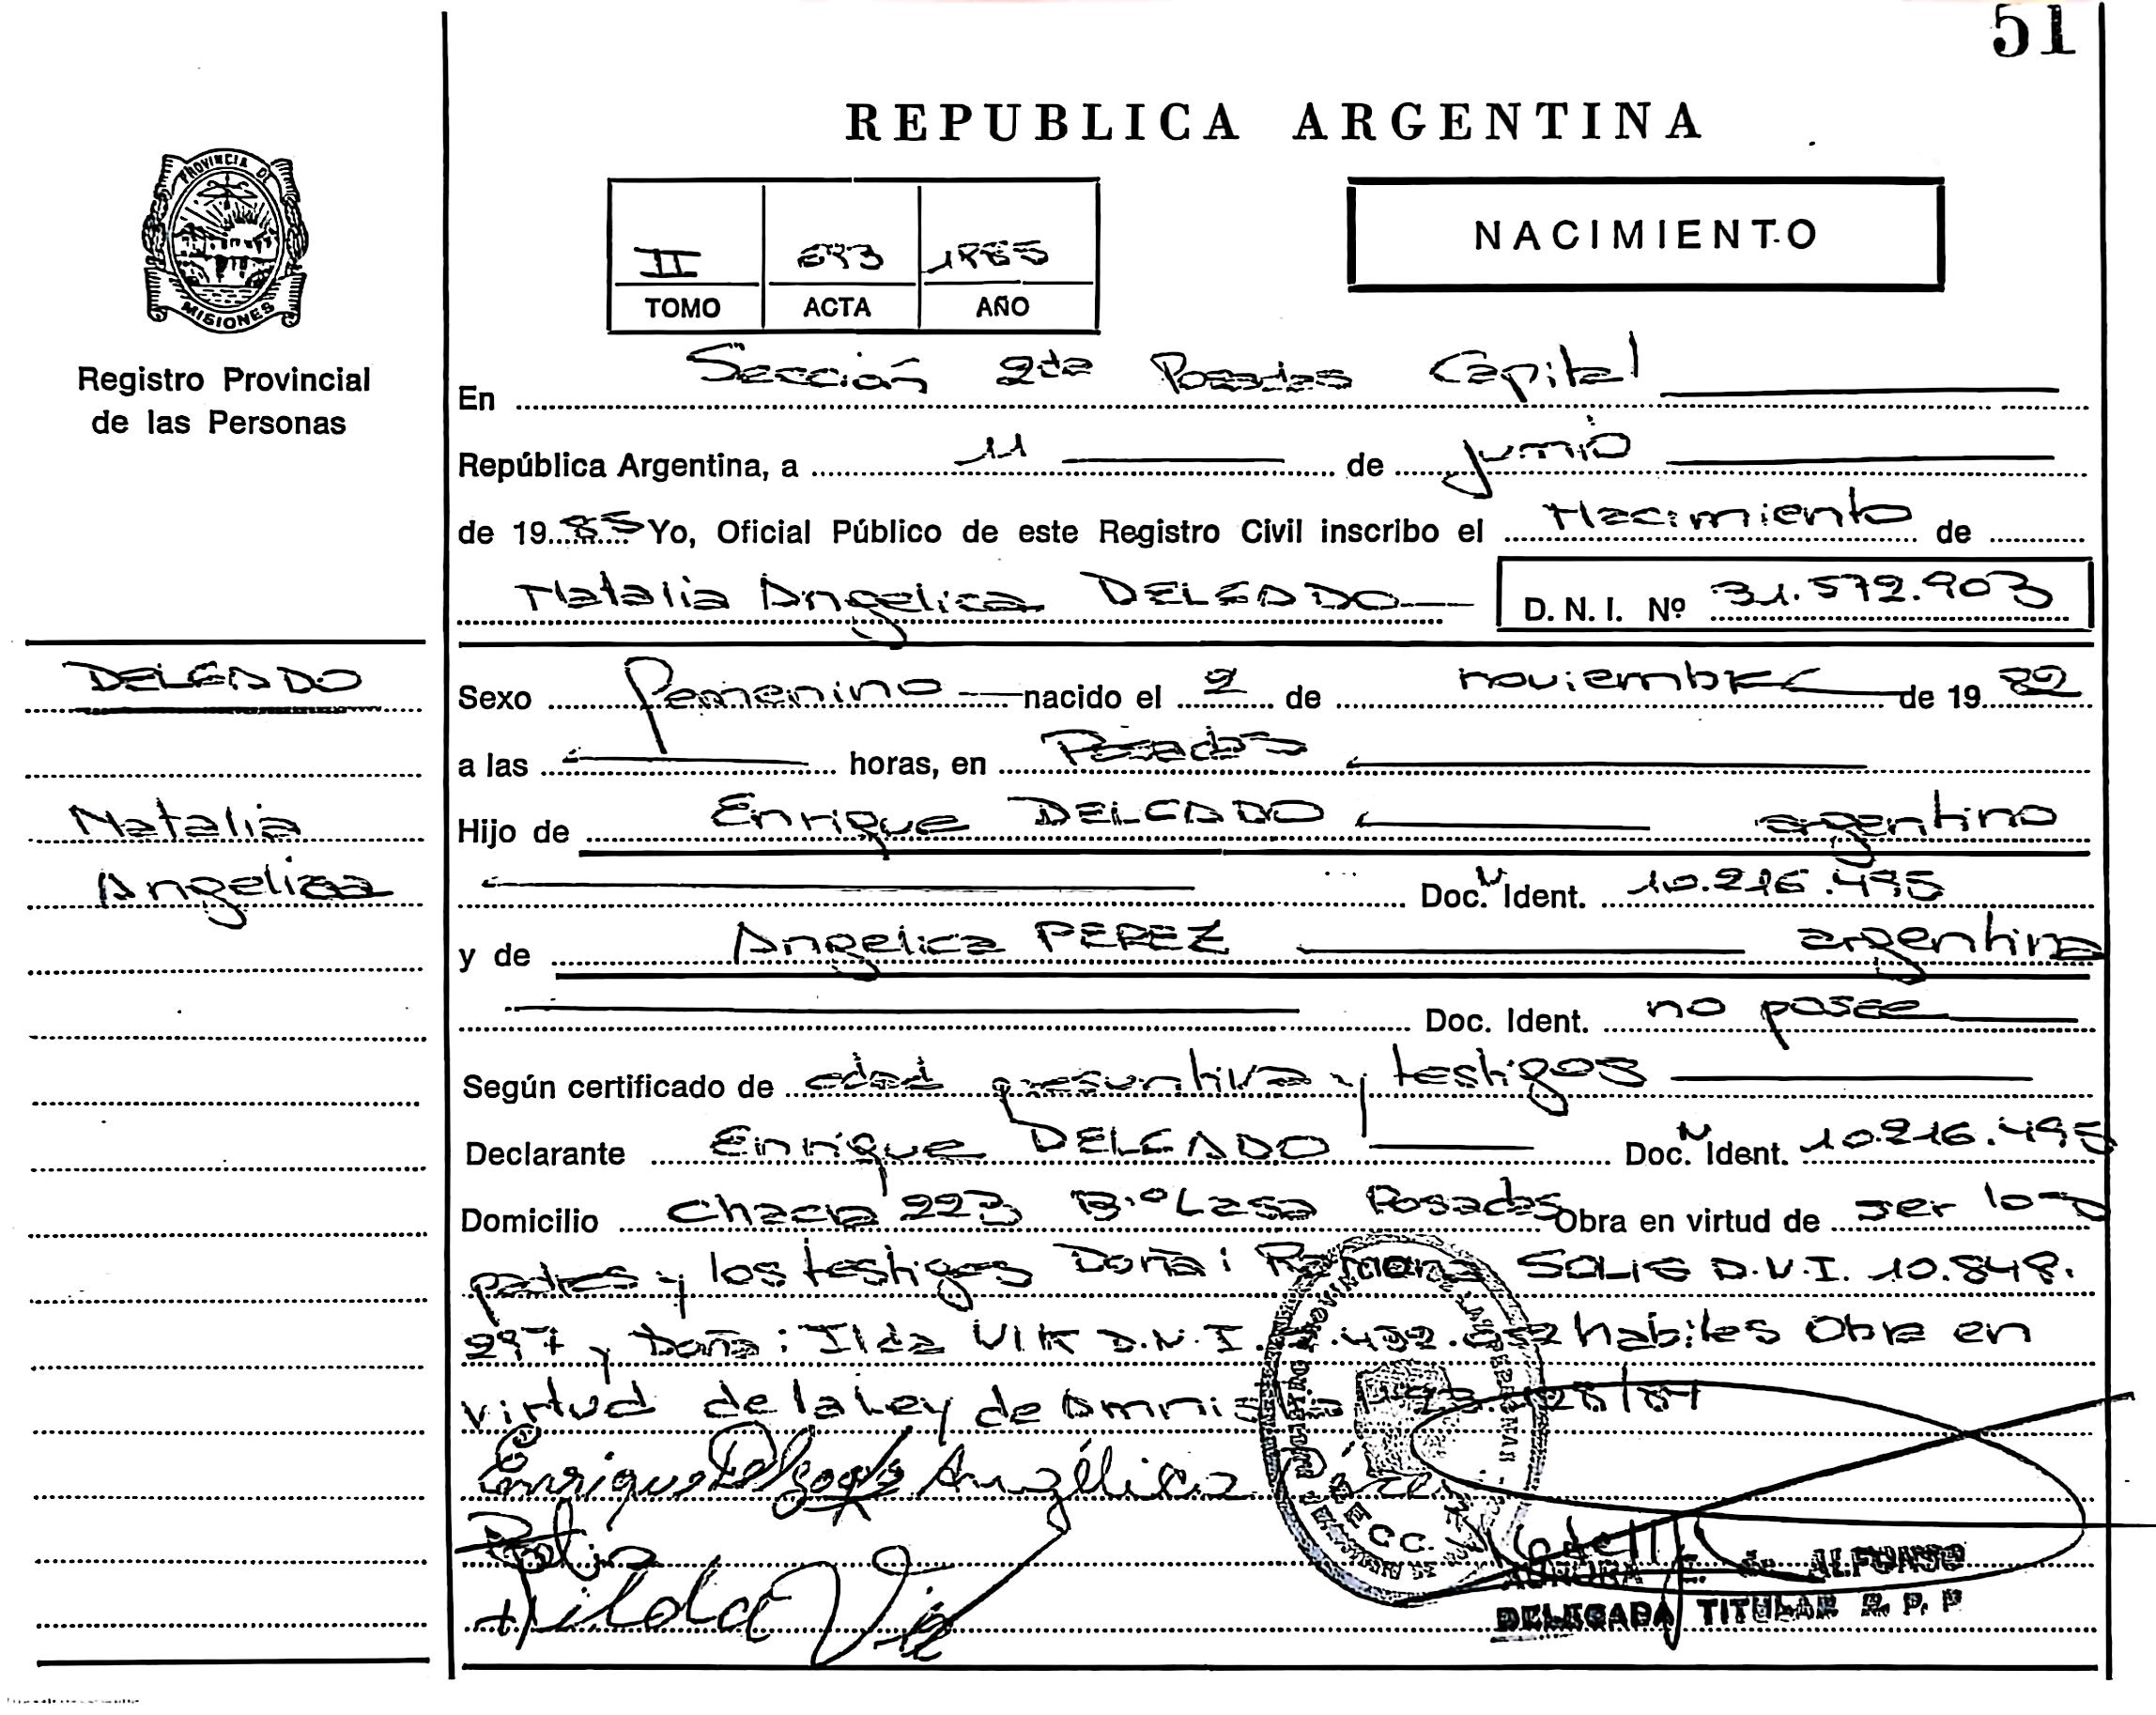 51
REPUBLICA ARGENTINA
NACIMIENTO
PROVINCIA DE
MISIONES
Registro Provincial
de las Personas
II 693 1985
TOMO ACTA AÑO
En Sección 2da Posadas Capital
República Argentina, a 11 de junio
de 1985 Yo, Oficial Público de este Registro Civil inscribo el Nacimiento de
Natalia Angelica DELGADO D. N. I. Nº 31.572.903
DELGADO
Natalia
Angelica
Sexo femenino nacido el 2 de noviembre de 1982
a las horas, en Posadas
Hijo de Enrique DELGADO argentino
Doc. N Ident. 10.216.495
y de Angelica PEREZ argentina
Doc. Ident. no posee
Según certificado de edad presuntiva y testigos
Declarante Enrique DELGADO Doc. N Ident. 10.216.495
Domicilio Chacra 223 B.º Lasa Posadas Obra en virtud de ser los
padres y los testigos Doña: Ramona SOLIS D.N.I. 10.848.
297 y Doña: Ilda VIK D.N.I. habiles Obra en
virtud de la Ley de
Enrique Delgado Angélica Pérez
Hilda Vik
AURORA E. de ALFONSO
DELEGADA TITULAR R. P. P